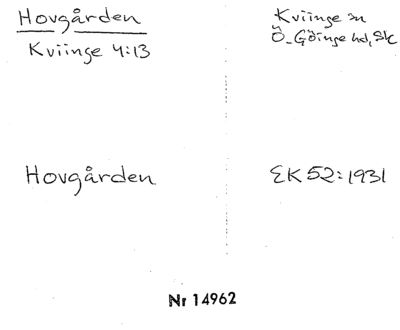 Hovgården
Kviinge 4:13
Kviinge sn
Ö. Göinge hd, Sk
Hovgården
EK 52:1931
Nr 14962